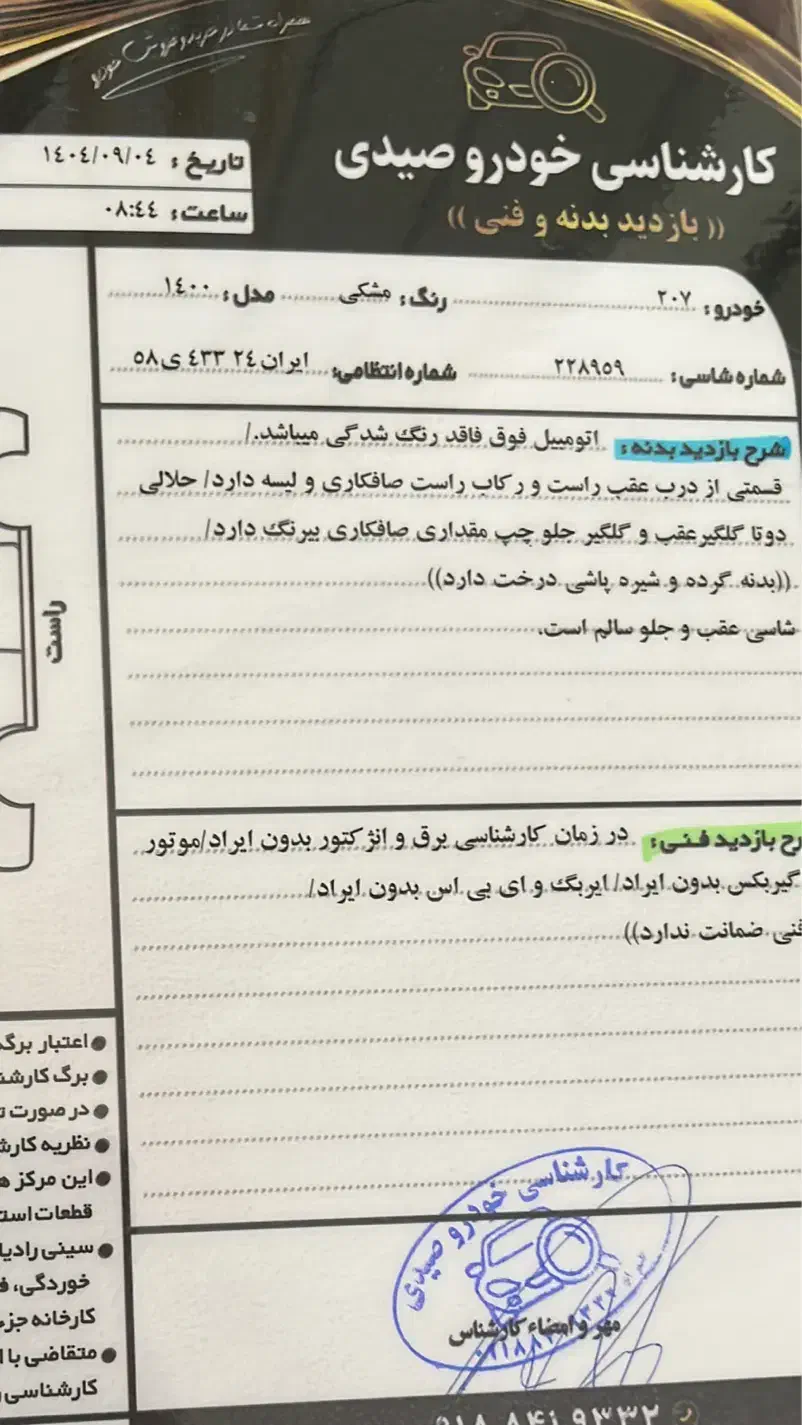 همراه شما در خرید و فروش خودرو
کارشناسی خودرو صیدی
(( بازدید بدنه و فنی ))
تاریخ: ۱۴۰۴/۰۹/۰۴
ساعت: ۰۸:۴۴
خودرو: ۲۰۷ رنگ: مشکی مدل: ۱۴۰۰
شماره شاسی: ۲۲۸۹۵۹ شماره انتظامی: ایران ۲۴ ۴۳۳ ی ۵۸
شرح بازدید بدنه: اتومبیل فوق فاقد رنگ شدگی میباشد./
قسمتی از درب عقب راست و رکاب راست صافکاری و لیسه دارد/ حلالی
دوتا گلگیرعقب و گلگیر جلو چپ مقداری صافکاری بیرنگ دارد/
((بدنه گرده و شیره پاشی درخت دارد))
شاسی عقب و جلو سالم است.
راست
رح بازدید فنی: در زمان کارشناسی برق و انژکتور بدون ایراد/موتور
گیربکس بدون ایراد/ ایربگ و ای بی اس بدون ایراد/
فنی ضمانت ندارد))
اعتبار برگه
برگ کارشنا
در صورت ت
نظریه کارش
این مرکز ه
قطعات است
سینی رادیا
خوردگی، ف
کارخانه جز
متقاضی با ا
کارشناسی
کارشناسی خودرو صیدی
مهر و امضاء کارشناس
۰۹۱۸ ۸۴۱ ۹۳۳۲